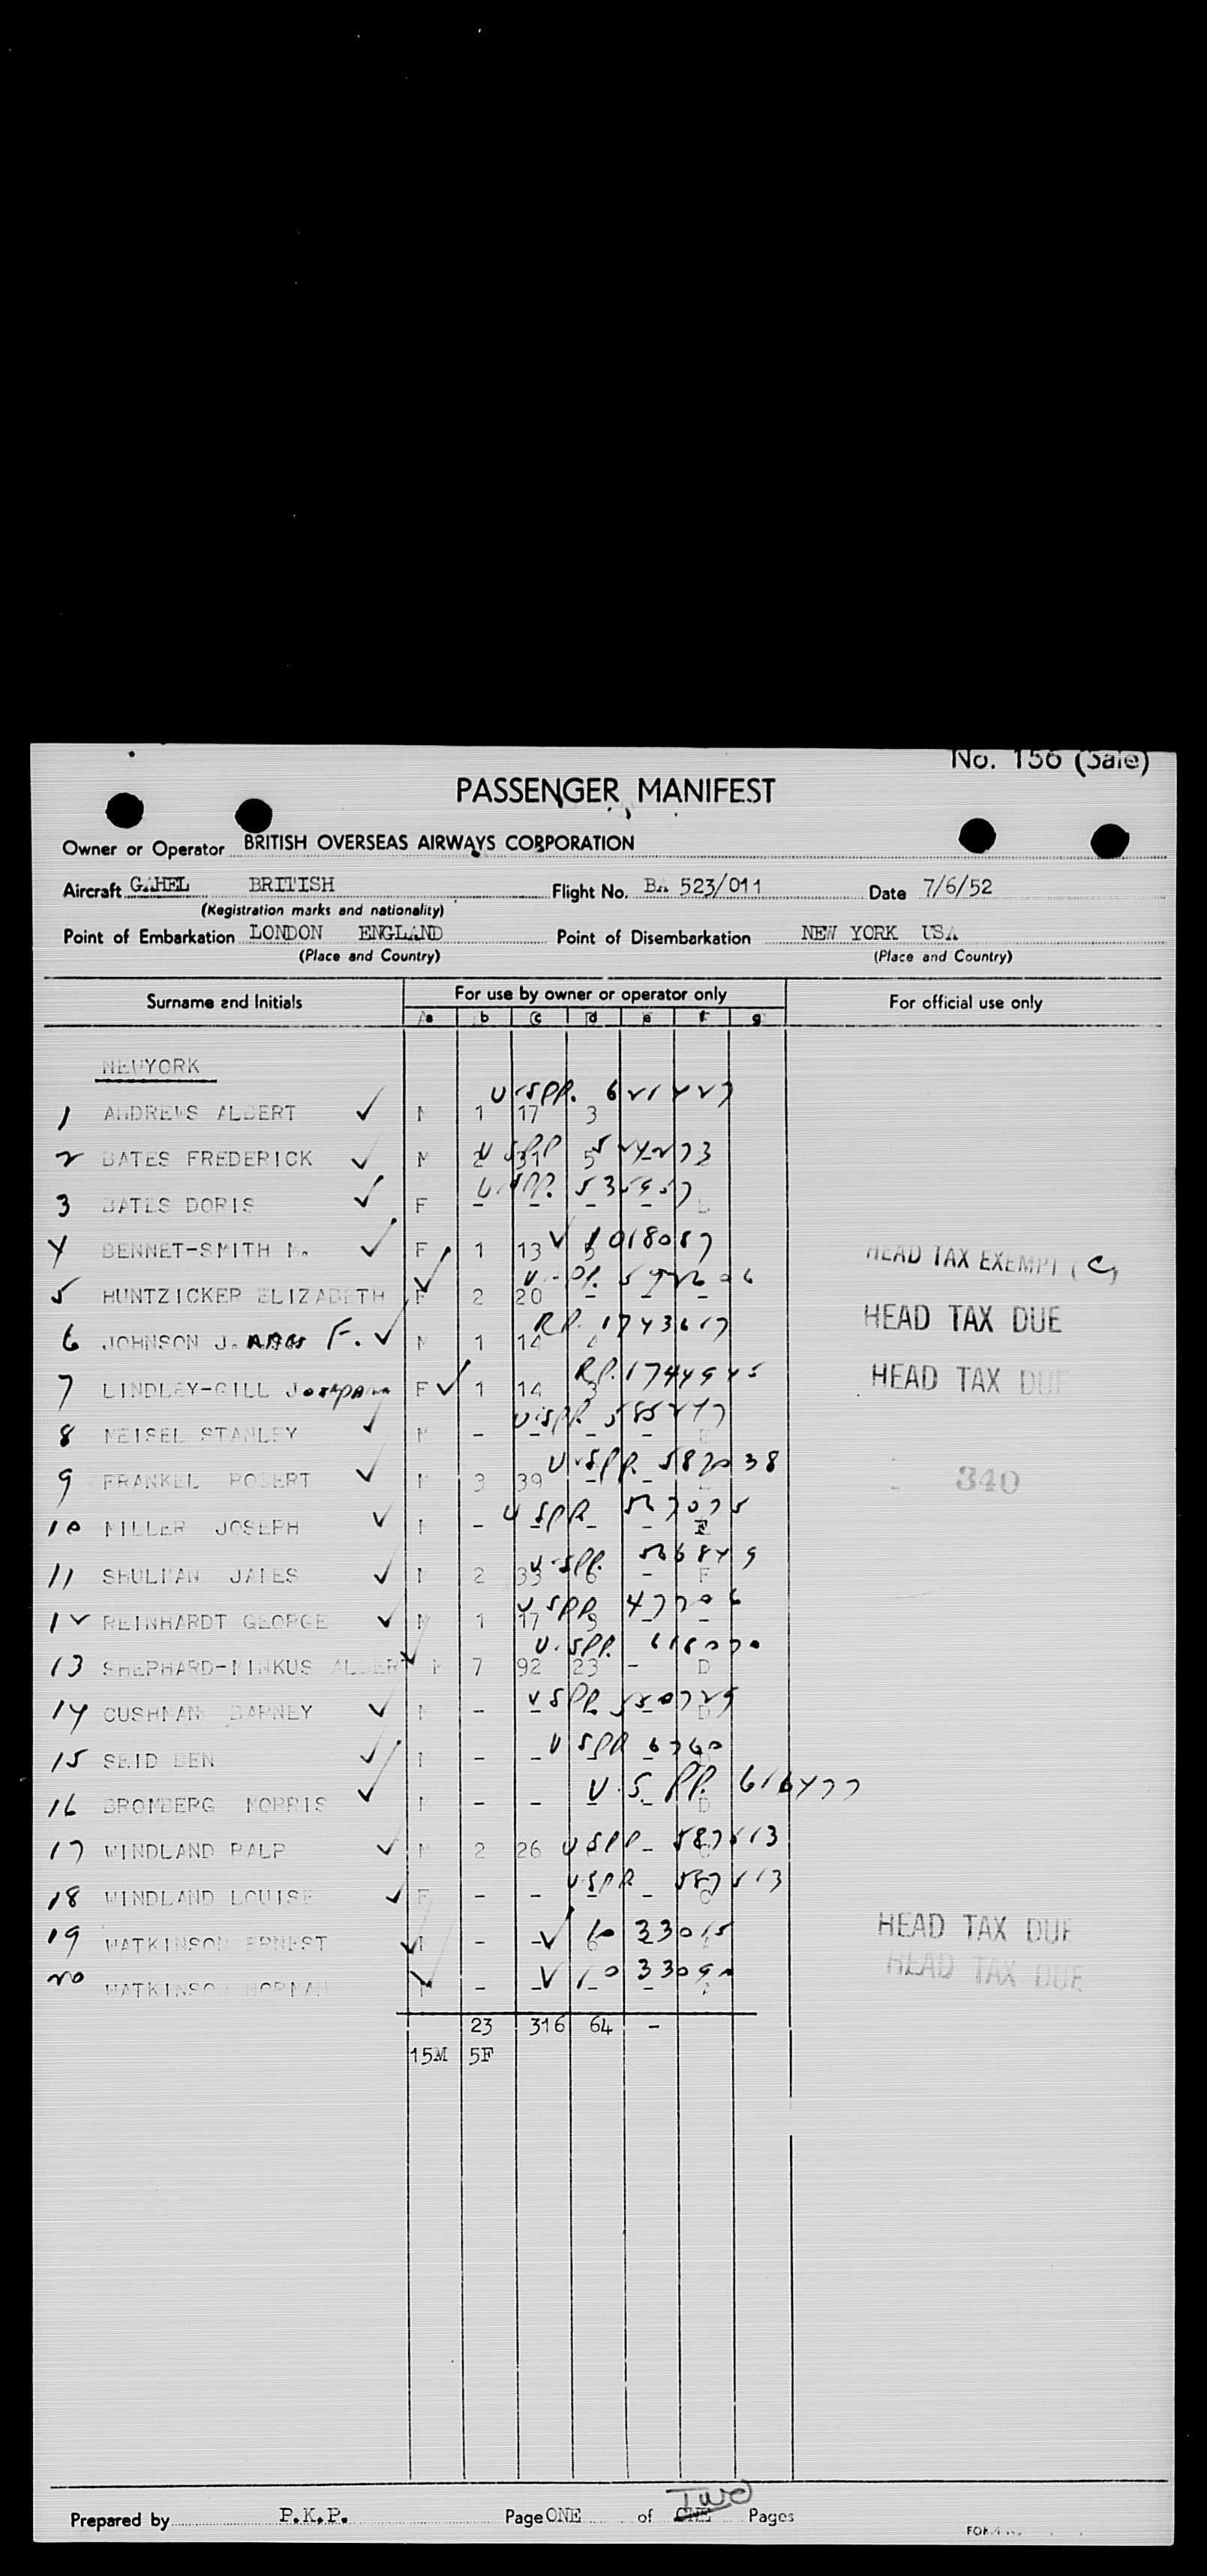 No. 156 (Sale)
PASSENGER MANIFEST
Owner or Operator BRITISH OVERSEAS AIRWAYS CORPORATION
Aircraft GAHEL BRITISH Flight No. BA 523/011 Date 7/6/52
(Registration marks and nationality)
Point of Embarkation LONDON ENGLAND Point of Disembarkation NEW YORK USA
(Place and Country) (Place and Country)
Surname and Initials For use by owner or operator only For official use only
a b c d e f g
NEWYORK
U.S.P.P. 621427
1 ANDREWS ALBERT ✓ M 1 17 3
USPP 524273
2 BATES FREDERICK ✓ M 2 31 5
U.S.PP. 535957
3 BATES DORIS ✓ F - - - -
V 1018087
4 BENNET-SMITH M. ✓ F 1 13 5 HEAD TAX EXEMPT (C)
5 HUNTZICKER ELIZABETH ✓ F 2 20 - - -
R.P. 1743617 HEAD TAX DUE
6 JOHNSON J. F. ✓ M 1 14 4
R.P. 1744945 HEAD TAX DUE
7 LINDLEY-GILL ✓ F 1 14 3
U.S.PP. 585247
8 MEISEL STANLEY ✓ M - - - -
U.S.PP. 587038
9 FRANKEL ROBERT ✓ M 3 39 - - 340
USPP. 527075
10 MILLER JOSEPH ✓ M - - - - F
U.S.PP. 536849
11 SHULMAN JAMES ✓ M 2 33 6 - F
USPP. 47706
12 REINHARDT GEORGE ✓ M 1 17 3 - -
U.S.PP. 618070
13 SHEPHARD-MINKUS ALBERT ✓ M 7 92 23 - D
USPP. 550729
14 CUSHMAN BARNEY ✓ M - - - - D
USPP 6760
15 SEID BEN ✓ M - - - -
U.S. PP. 616477
16 BROMBERG MORRIS ✓ M - - - - D
USPP 587513
17 WINDLAND RALP ✓ M 2 26 - C
USPP 587513
18 WINDLAND LOUISE ✓ F - - - - C
V 1033015 HEAD TAX DUE
19 WATKINSON ERNEST ✓ M - - 6
V 103309 HEAD TAX DUE
20 WATKINSON NORMAN ✓ M - - - -
23 316 64 -
15M 5F
Two
Prepared by P.K.P. Page ONE of ONE Pages